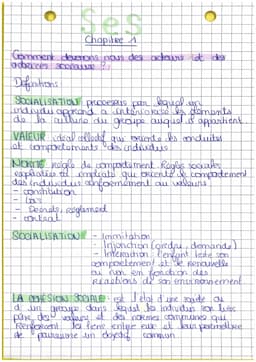 Ses
Chapitre 1
Comment devenons nous des acteurs et des
actrices sociaux ?
Définitions
SOCIALISATION processus par lequel un
individu apprend à intérioriser les éléments
de la culture du groupe auquel il appartient
VALEUR idéal collectif qui oriente les conduites
et comportements des individus
NORME règle de comportement Règles sociales
explicites et implicites qui oriente le comportement
des individus conformément au valeurs
- constitution
- Lois
- Décrets, règlement
- contrat
SOCIALISATION - Immitation
- Injonction (ordre, demande)
- Interaction l'enfant teste son
comportement et le renouvelle
ou non en fonction des
réactions de son environnement
LA COHÉSION SOCIALE est l'état d'une société ou
d'un groupe dans lequel les individus ont
des valeurs et des normes communes qui
Renforcent les liens entre eux et leur permettre
de poursuivre un objectif commun